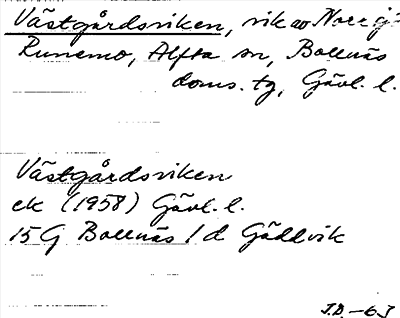 Västgårdsviken, vik av Norrsj
Runemo, Alfta sn, Bollnäs
doms. tg, Gävl. l.
Västgårdsviken
ek (1958) Gävl. l.
15 G Bollnäs 1 d Gäddvik
J.D. -63